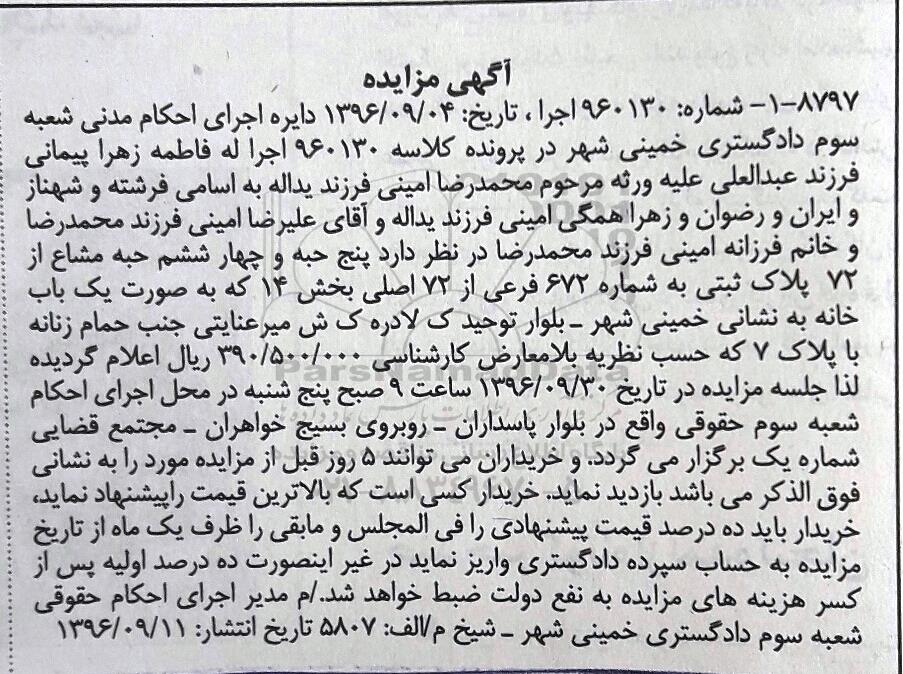 آگهی مزایده
۱-۸۷۹۷- شماره: ۹۶۰۱۳۰ اجرا ، تاریخ: ۱۳۹۶/۰۹/۰۴ دایره اجرای احکام مدنی شعبه
سوم دادگستری خمینی شهر در پرونده کلاسه ۹۶۰۱۳۰ اجرا له فاطمه زهرا پیمانی
فرزند عبدالعلی علیه ورثه مرحوم محمدرضا امینی فرزند یداله به اسامی فرشته و شهناز
و ایران و رضوان و زهرا همگی امینی فرزند یداله و آقای علیرضا امینی فرزند محمدرضا
و خانم فرزانه امینی فرزند محمدرضا در نظر دارد پنج حبه و چهار ششم حبه مشاع از
۷۲ پلاک ثبتی به شماره ۶۷۲ فرعی از ۷۲ اصلی بخش ۱۴ که به صورت یک باب
خانه به نشانی خمینی شهر ـ بلوار توحید ک لادره ک ش میرعنایتی جنب حمام زنانه
با پلاک ۷ که حسب نظریه بلامعارض کارشناسی ۳۹۰/۵۰۰/۰۰۰ ریال اعلام گردیده
ParsNamadData
لذا جلسه مزایده در تاریخ ۱۳۹۶/۰۹/۳۰ ساعت ۹ صبح پنج شنبه در محل اجرای احکام
شعبه سوم حقوقی واقع در بلوار پاسداران ـ روبروی بسیج خواهران ـ مجتمع قضایی
شماره یک برگزار می گردد. و خریداران می توانند ۵ روز قبل از مزایده مورد را به نشانی
فوق الذکر می باشد بازدید نماید. خریدار کسی است که بالاترین قیمت راپیشنهاد نماید،
خریدار باید ده درصد قیمت پیشنهادی را فی المجلس و مابقی را ظرف یک ماه از تاریخ
مزایده به حساب سپرده دادگستری واریز نماید در غیر اینصورت ده درصد اولیه پس از
کسر هزینه های مزایده به نفع دولت ضبط خواهد شد./م مدیر اجرای احکام حقوقی
شعبه سوم دادگستری خمینی شهر ـ شیخ م/الف: ۵۸۰۷ تاریخ انتشار: ۱۳۹۶/۰۹/۱۱